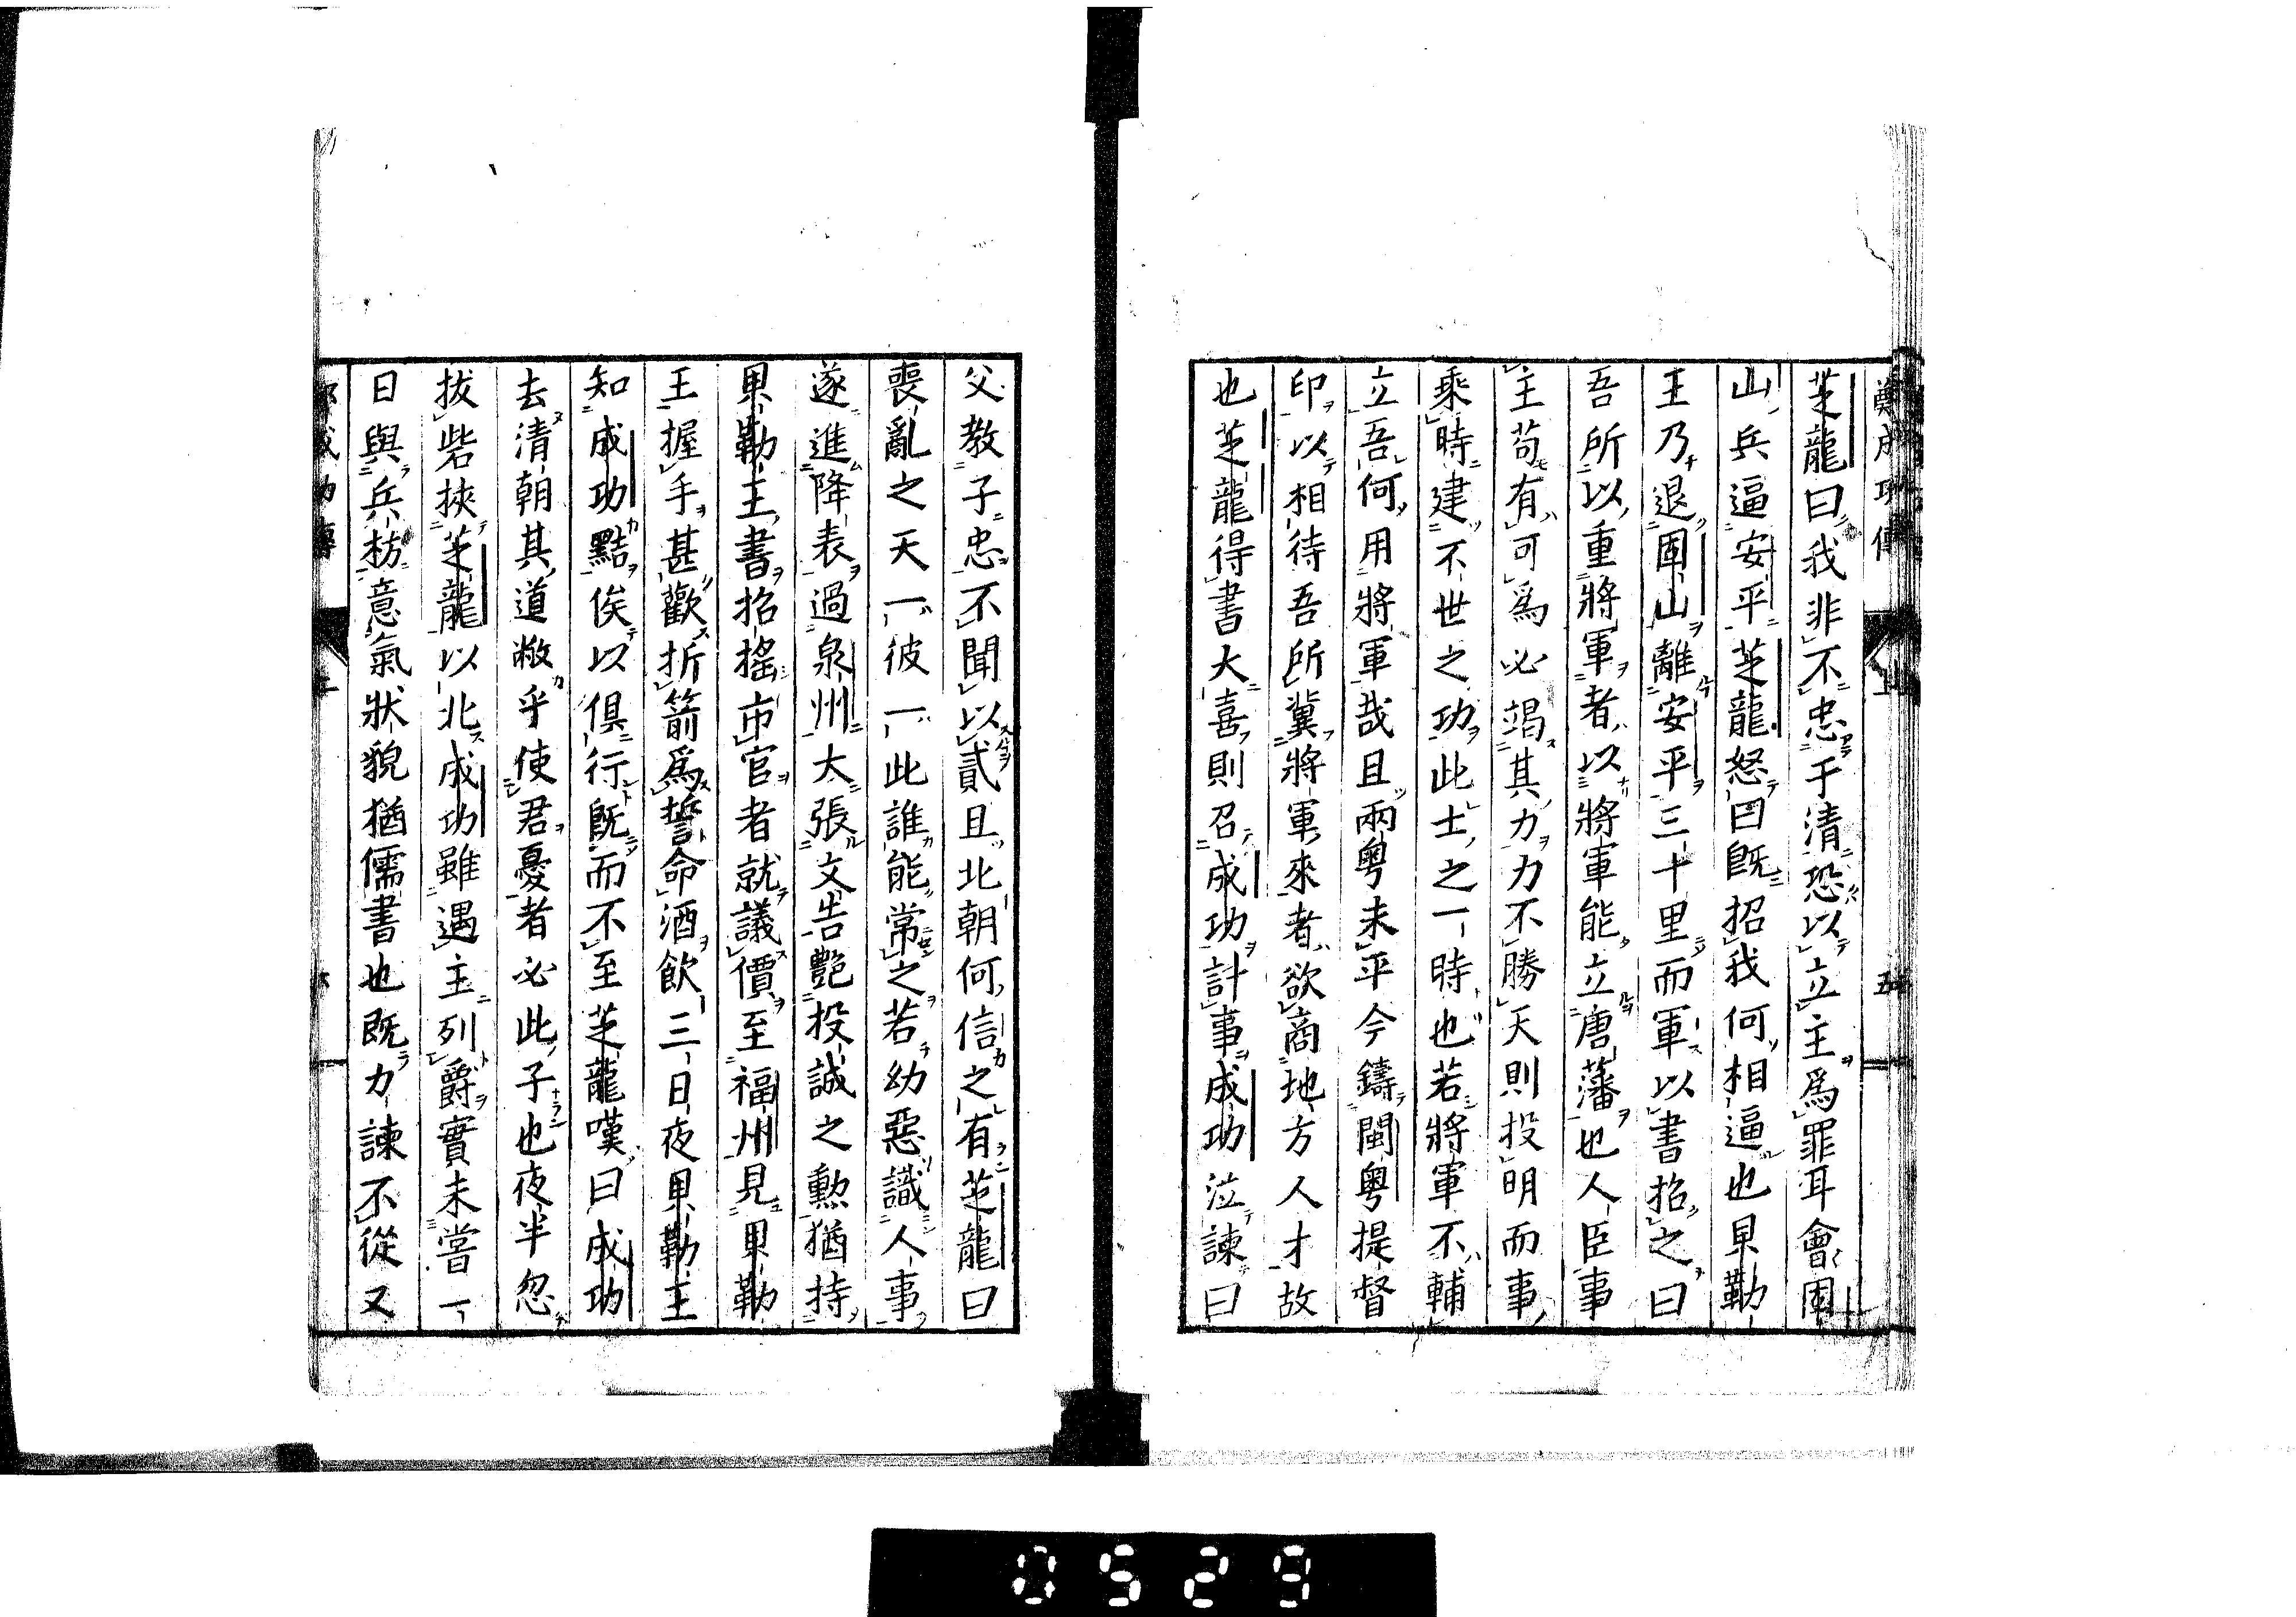 鄭成功傳 上 五
芝龍曰我非不忠于清恐以立主爲罪耳會固
山兵逼安平芝龍怒曰旣招我何相逼也貝勒
王乃退固山離安平三十里而軍以書招之曰
吾所以重將軍者以將軍能立唐藩也人臣事
主苟有可爲必竭其力力不勝天則投明而事
乘時建不世之功此士之一時也若將軍不輔
立吾何用將軍哉且兩粤未平今鑄閩粤提督
印以相待吾所冀將軍來者欲商地方人才故
也芝龍得書大喜則召成功計事成功泣諫曰
父教子忠不聞以貳且北朝何信之有芝龍曰
喪亂之天一彼一此誰能常之若幼惡識人事
遂進降表過泉州大張文告艶投誠之勲猶持
貝勒王書招搖市官者就議價至福州見貝勒
王握手甚歡折箭爲誓命酒飮三日夜貝勒王
知成功黠俟以倶行旣而不至芝龍嘆曰成功
去清朝其道敝乎使君憂者必此子也夜半忽
拔砦挾芝龍以北成功雖遇主列爵實未嘗一
日與兵枋意氣狀貌猶儒書也旣力諫不從又